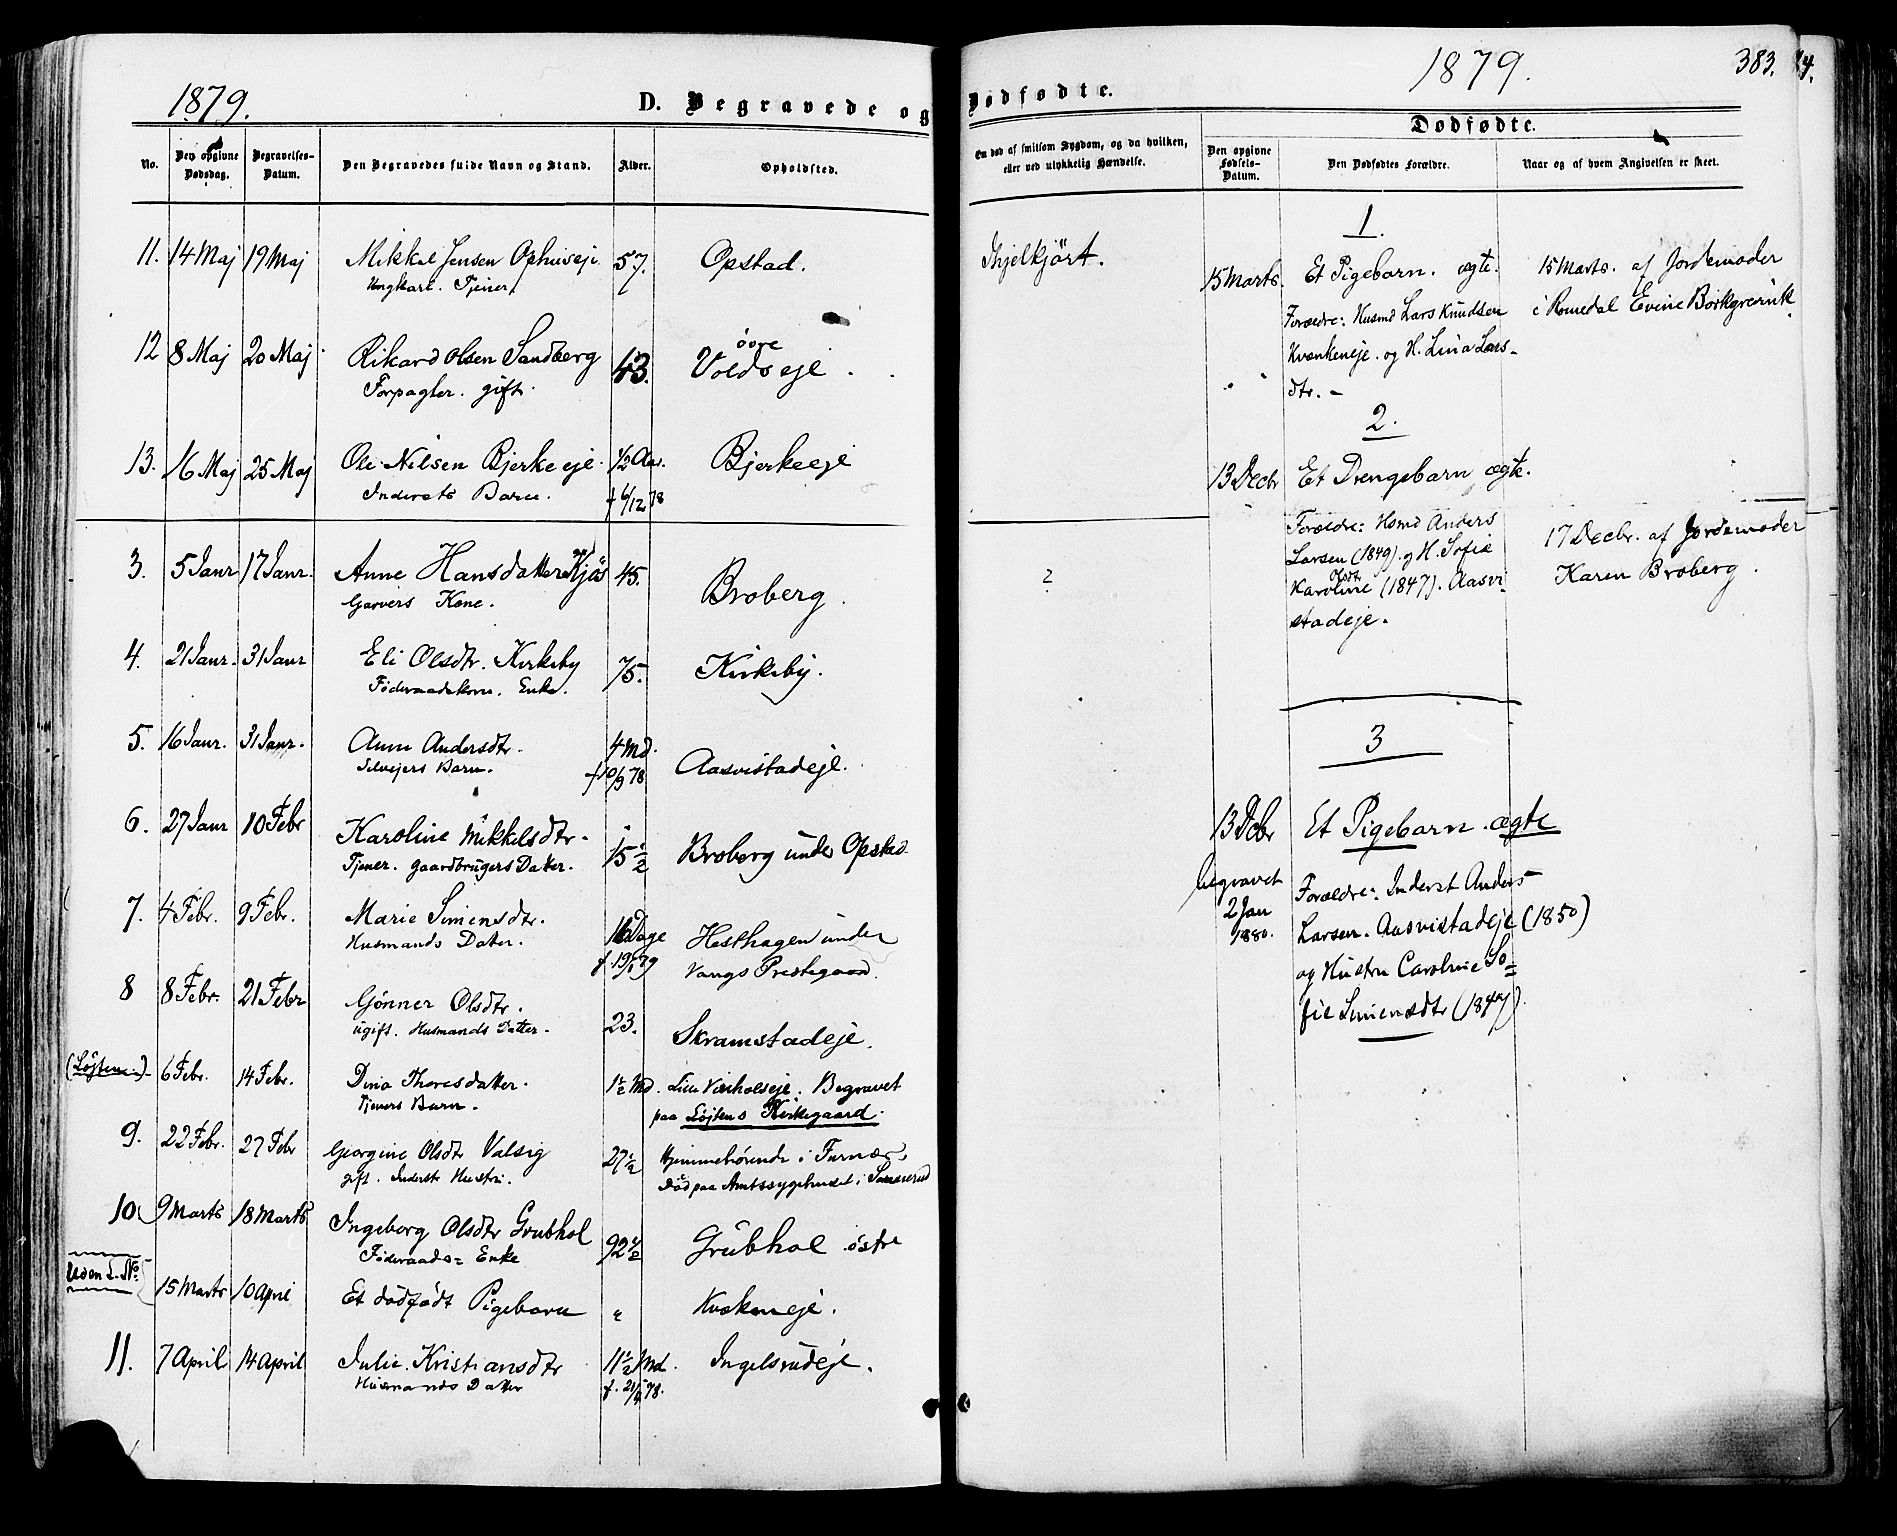 1879.
D. Begravede og
No.
Den opgivne Dødsdag.
Begravelses-Datum.
Den Begravedes fulde Navn og Stand.
Alder.
Opholdsted.
11. 14 Maj 19 Maj Mikkel Jensen Ophuseje 57. Opstad.
Ungkarl. Tjener
12 8 Maj 20 Maj Rikard Olsen Sandberg 43. øvre Voldseje.
Forpagter. gift.
13. 16 Maj 25 Maj Ole Nilsen Bjerkeeje 1/2 Aar. Bjerkeeje
Indersts Barn. f 6/12 78
3. 5 Janr 17 Janr. Anne Hansdatter Kjøs 45. Broberg.
Garvers Kone.
4. 21 Janr. 31 Janr Eli Olsdtr. Kirkeby 75. Kirkeby.
Føderaadskone. Enke.
5. 16 Janr. 31 Janr. Anne Andersdtr. 4 Md. Aasvistadeje.
Selvejers Barn. f 10/9 78
6. 27 Janr 10 Febr Karoline Mikkelsdtr. 15 1/2 Broberg under Opstad
Tjener. Gaardbrugers Datter.
7. 4 Febr. 9 Febr. Marie Simensdtr. 16 Dage Hesthagen under
Husmands Datter. f. 19/1 79 Vangs Prestegaard.
8 8 Febr. 21 Febr Gønner Olsdtr. 23. Skramstadeje.
ugift. Husmands Datter.
(Løjten.) 6 Febr. 14 Febr. Dina Thoresdatter. 1 1/2 Md. Lille Viksholseje. Begravet
Tjeners Barn. paa Løjtens Kirkegaard.
9. 22 Febr. 27 Febr Georgine Olsdtr Valsig 27 1/2 Hjemmehørende i Furnæs.
gift. Inderst Hustru. Død paa Amtssygehuset i Sanserud
10. 9 Marts 18 Marts Ingeborg Olsdtr Grubhol 92 1/2 Grubhol østre
Føderaads= Enke
Uden L. No 15 Marts 10 April Et dødfødt Pigebarn " Kvækeneje.
11. 7 April 14 April Julie Kristiansdtr 11 1/2 Md. Ingelsrudeje.
Husmands Datter f. 21/4 78.
Dødfødte.
1879.
383.
4.
En død af smitsom Sygdom, og da hvilken,
eller ved ulykkelig Hændelse.
Dødfødte.
Den opgivne Fødsels-Datum.
Den Dødfødtes Forældre.
Naar og af hvem Angivelsen er skeet.
Ihjelkjørt.
1.
15 Marts. Et Pigebarn. ægte. 15 Marts. af Jordemoder
Forældre: Husmd Lars Knudsen i Romedal Evine Borkgrevink.
Kvækeneje. og H. Lina Lars-
dtr. -
2.
13 Decbr Et Drengebarn ægte.
Forældre: Hsmd Anders 17 Decbr. af Jordemoder
Larsen (1849). og H. Sofie
2
Karoline Olsdtr (1847). Aasvi- Karen Broberg.
stadeje.
3
13 Dcbr Et Pigebarn. ægte
begravet Forældre: Inderst Anders
2 Jan 1880. Larsen. Aasvistadeje (1850)
og Hustru Caroline So=
fie Simensdtr (1847).